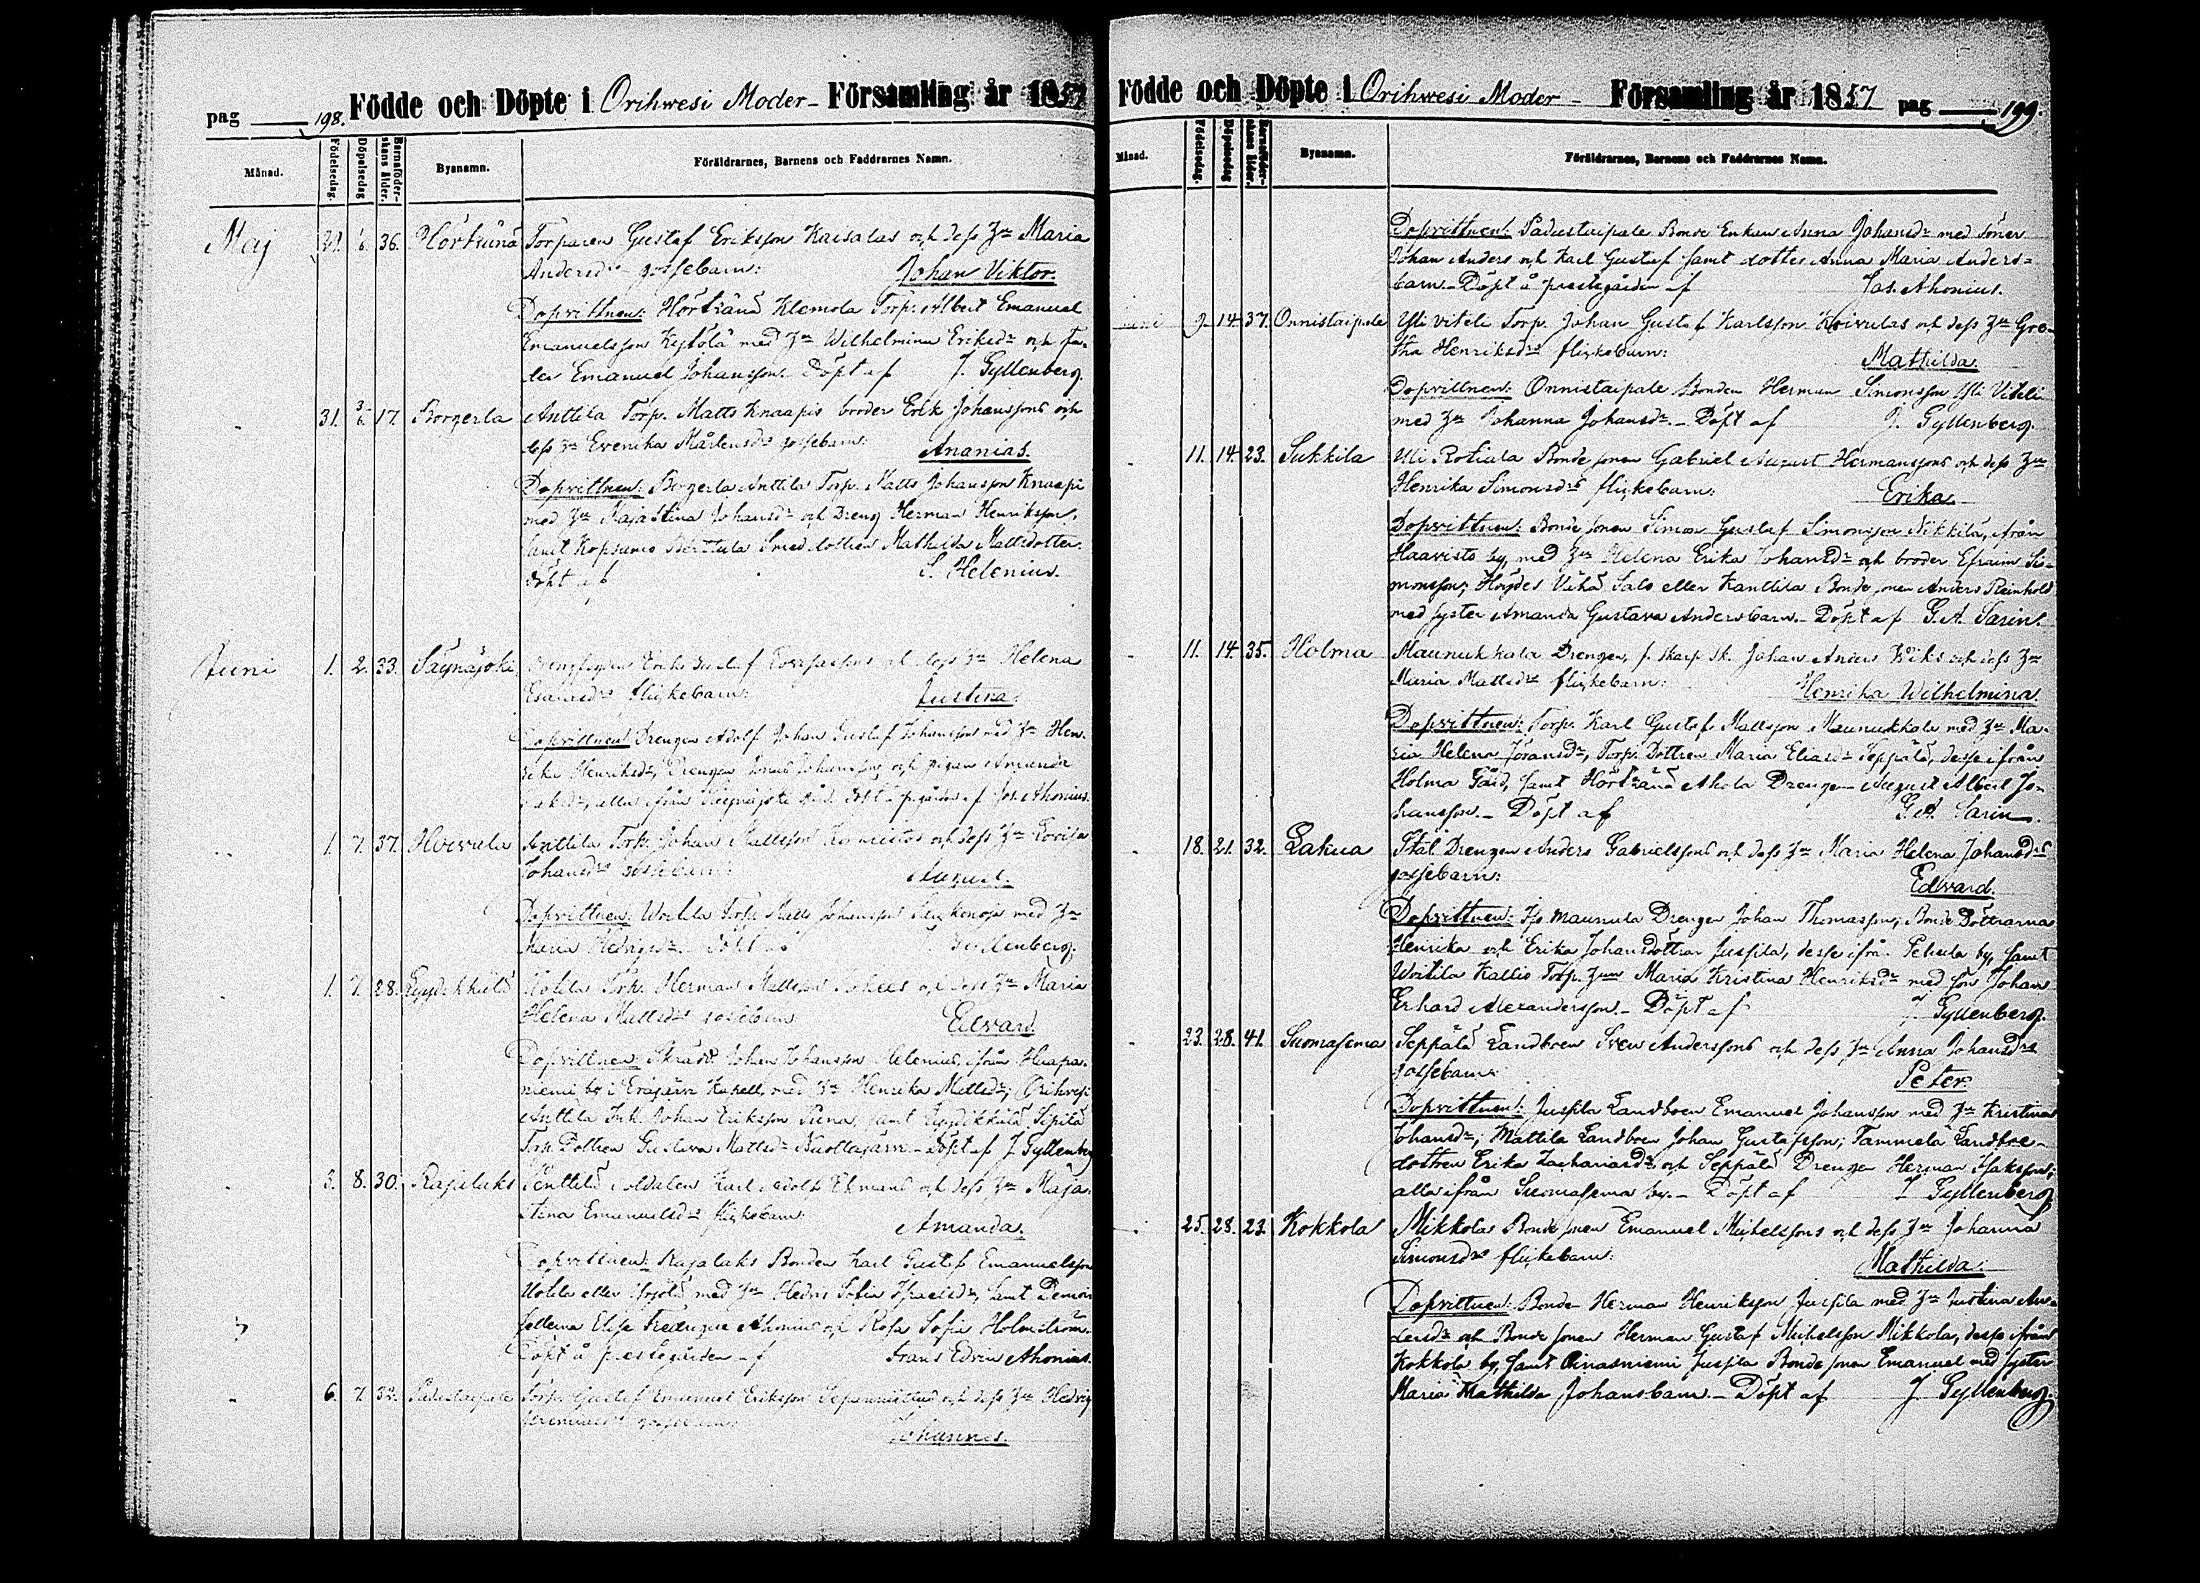 pag 198. Födde och Döpte i Orihwesi Moder- Församling år 1857
Månad. Födelsedag. Döpelsedag Barnaföderskans ålder. Bysnamn. Föräldrarnes, Barnens och Faddrarnes Namn.
Maj 6. 36. Torparen Gustaf Eriksson Kaisalas och dess Hu Maria
Andersdrs gossebarn: Johan Viktor.
Dopvittnen: Hörtränä Klemola Torp. Albert Emanuel
Emanuelsson med Hu Wilhelmina Eriksdr och fa-
der Emanuel Johansson. Döpt af J. Gyllenberg.
31. 3/6. 17. Borgerla Anttila Torp. Matts Knaapis broder Erik Johanssons och
dess Hu Evenika Mårtensdrs gossebarn: Ananias.
Dopvittnen: Borgerla Anttila Torp. Matts Johansson Knaapi
med Hu Kaja Stina Johansdr och Dreng Herman Henriksson,
samt Kopsamo Berttula Smed dottren Mathilda Mattsdotter.
Döpt af S. Helenius.
Juni 1. 2. 33. Säynäjoki Erik Gustaf och dess Hu Helena
flickebarn: Justina.
Dopvittnen: Drengen Adolf Johan Gustaf Johansson med Hu Hen-
rika Henriksdr, Drengen Jonas Johansson och pigan Amanda
alla ifrån Säynäjoki Döpt å p.gården af Jos. Ahonius.
1. 7. 37. Hoivula Anttila Torp. Johan Mattsson och dess Hu Lovisa
Johansdrs gossebarn: August.
Dopvittnen: Woitila Torp. Matts Johansson med Hu
Maria Döpt af J. Gyllenberg.
1. 7. 28. Herman Mattsson och dess Hu Maria
Helena Mattsdrs gossebarn: Edvard.
Dopvittnen: Johan Johansson Helenius, ifrån Haapa-
niemi by i Eräjärvi Kapell, med Hu Henrika Mattsdr; Orihvesi
Anttila Inh. Johan Eriksson samt Sipilä
Torp. Dottren Gustava Mattsdr Döpt af J Gyllenberg
3. 8. 30. Rajalaks Penttilä Soldaten Karl Adolf Ekmans och dess Hu Maja
Stina Emanuelsdrs flickebarn: Amanda.
Dopvittnen: Rajalaks Bonden Karl Gustaf Emanuelsson
Uotila eller Yrjölä med Hu Hedvig Sofia Israelsdr, samt Demoi-
sellerna Elise Fredrique Ahonius och Rosa Sofia Holmström.
Döpt å prestgården af Frans Edvin Ahonius.
6. 7. 32. Padustaipale Torp. Gustaf Emanuel Eriksson och dess Hu Hedvig
gossebarn: Johannes.
Födde och Döpte i Orihwesi Moder- Församling år 1857 pag 199.
Månad. Födelsedag. Döpelsedag Barnaföderskans ålder. Bysnamn. Föräldrarnes, Barnens och Faddrarnes Namn.
Dopvittnen: Padustaipale Bonde Enkan Anna Johansdr med söner
Johan Anders och Karl Gustaf samt dotter Anna Maria Anders-
barn. Döpt å prestegården af Jos. Ahonius.
Juni 9. 14. 37. Onnistaipale Yli Viteli Torp. Johan Gustaf Karlsson Koivulas och dess Hu Gre-
tha Henriksdrs flickebarn: Mathilda.
Dopvittnen: Onnistaipale Bonden Herman Simonsson Yli Viteli
med Hu Johanna Johansdr. - Döpt af J. Gyllenberg.
11. 14. 23. Sukkila Yli Rotiala Bonde sonen Gabriel August Hermanssons och dess Hu
Henrika Simonsdrs flickebarn: Erika.
Dopvittnen: Bonde sonen Simon Gustaf Simonsson Nikkilä, ifrån
Haavisto by, med Hu Helena Erika Johansdr och broder Efraim Si-
monsson; Salo eller Kanttila Bonde sonen Anders Reinhold
med syster Amanda Gustava Andersbarn. Döpt af G. A. Sarin.
11. 14. 35. Holma Maunukkala Drengen, f. skarp sk. Johan Anders Wiks och dess Hu
Maria Mattsdrs flickebarn: Henrika Wilhelmina
Dopvittnen: Torp. Karl Gustaf Mattsson Maunukkala med Hu Ma-
ria Helena Jöransdr, Torp. Dottren Maria Eliasdr Seppälä, desse ifrån
Holma Gård, samt Hörtränä Ahola Drengen August Albert Jo-
hansson. - Döpt af G. A. Sarin.
18. 21. 32. Lakua Ståt Drengen Anders Gabrielssons och dess Hu Maria Helena Johansdrs
gossebarn: Edvard.
Dopvittnen: Iso Maunula Drengen Johan Thomasson; Bonde Döttrarna
Henrika och Erika Johansdöttrar Jussila, desse ifrån Pehula by, samt
Woitila Kallio Torp. Hun Maria Kristina Henriksdr med son Johan
Erhard Alexandersson. - Döpt af J. Gyllenberg.
23. 28. 41. Suomasema Seppälä Landboen Sven Anderssons och dess Hu Anna Johansdrs
gossebarn: Peter.
Dopvittnen: Jussila Landboen Emanuel Johansson med Hu Kristina
Johansdr; Mattila Landboen Johan Gustafsson; Tammela Landboe-
dottren Erika Zachariasdr och Seppälä Drengen Herman Isaksson;
alla ifrån Suomasema by. - Döpt af J Gyllenberg
25. 28. 23. Kokkola Mikkolas Bonde sonen Emanuel Michelssons och dess Hu Johanna
Simonsdrs flickebarn: Mathilda.
Dopvittnen: Bonden Herman Henriksson Jussila med Hu Justina An-
dersdr och Bonde sonen Herman Gustaf Michelsson Mikkola, desse ifrån
Kokkola by, samt Oinasniemi Jussila Bonde sonen Emanuel med syster
Maria Mathilda Johansbarn - Döpt af J Gyllenberg.